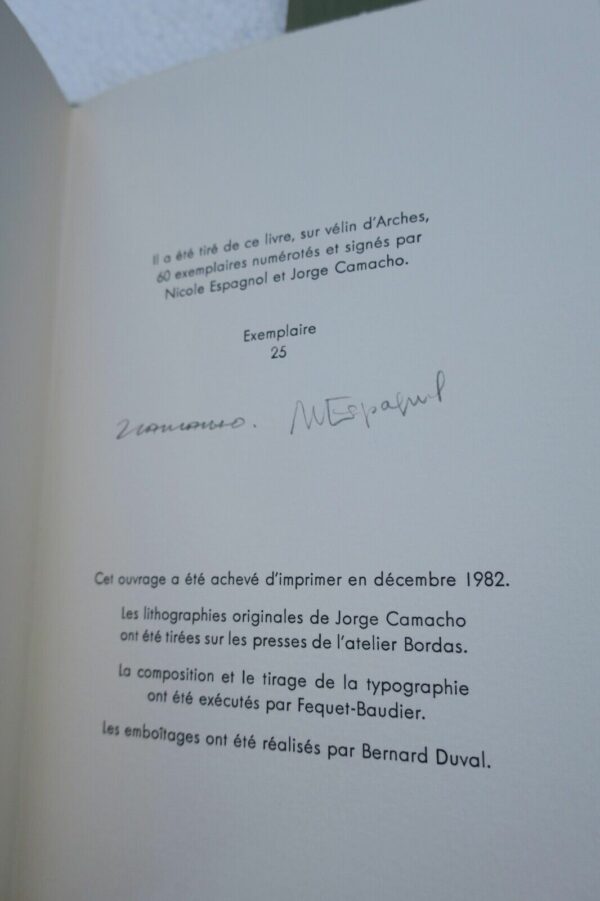 Il a été tiré de ce livre, sur vélin d'Arches,
60 exemplaires numérotés et signés par
Nicole Espagnol et Jorge Camacho.
Exemplaire
25
NEspagnol
Cet ouvrage a été achevé d'imprimer en décembre 1982.
Les lithographies originales de Jorge Camacho
ont été tirées sur les presses de l'atelier Bordas.
La composition et le tirage de la typographie
ont été exécutés par Fequet-Baudier.
Les emboîtages ont été réalisés par Bernard Duval.